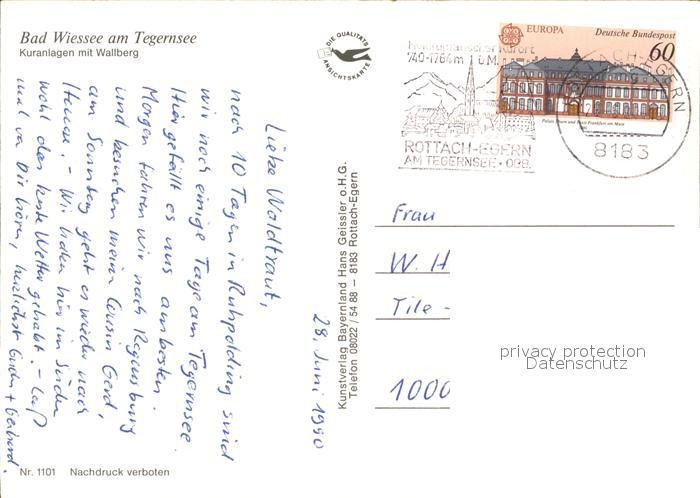 Bad Wiessee am Tegernsee
Kuranlagen mit Wallberg
DIE QUALITÄTS
ANSICHTSKARTE
Liebe Waldtraut,
nach 10 Tagen in Ruhpolding sind
wir noch einige Tage am Tegernsee.
Hier gefällt es uns am besten.
Morgen fahren wir nach Regensburg
und besuchen meinen Cousin Gerd,
am Sonntag geht es wieder nach
Hause. - Wir haben hier im Süden
wohl das beste Wetter gehabt. - Laß
mal von Dir hören, herzlichst
28. Juni 1990
Kunstverlag Bayernland Hans Geissler o.H.G.
Telefon 08022 / 54 88 – 8183 Rottach-Egern
EUROPA
Deutsche Bundespost
60
Heilklimatischer Kurort
740-1764 m ü.M.
ROTTACH-EGERN
AM TEGERNSEE · OBB.
CH-EGERN
8183
Frau
W. H
Tile -
1000
privacy protection
Datenschutz
Nr. 1101 Nachdruck verboten